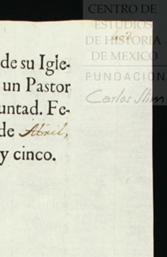 CENTRO DE
ESTUDIOS
DE HISTORIA
DE MEXICO
FUNDACIÓN
Carlos Slim
de su Igle-
un Pastor
untad. Fe-
de Abril,
y cinco.